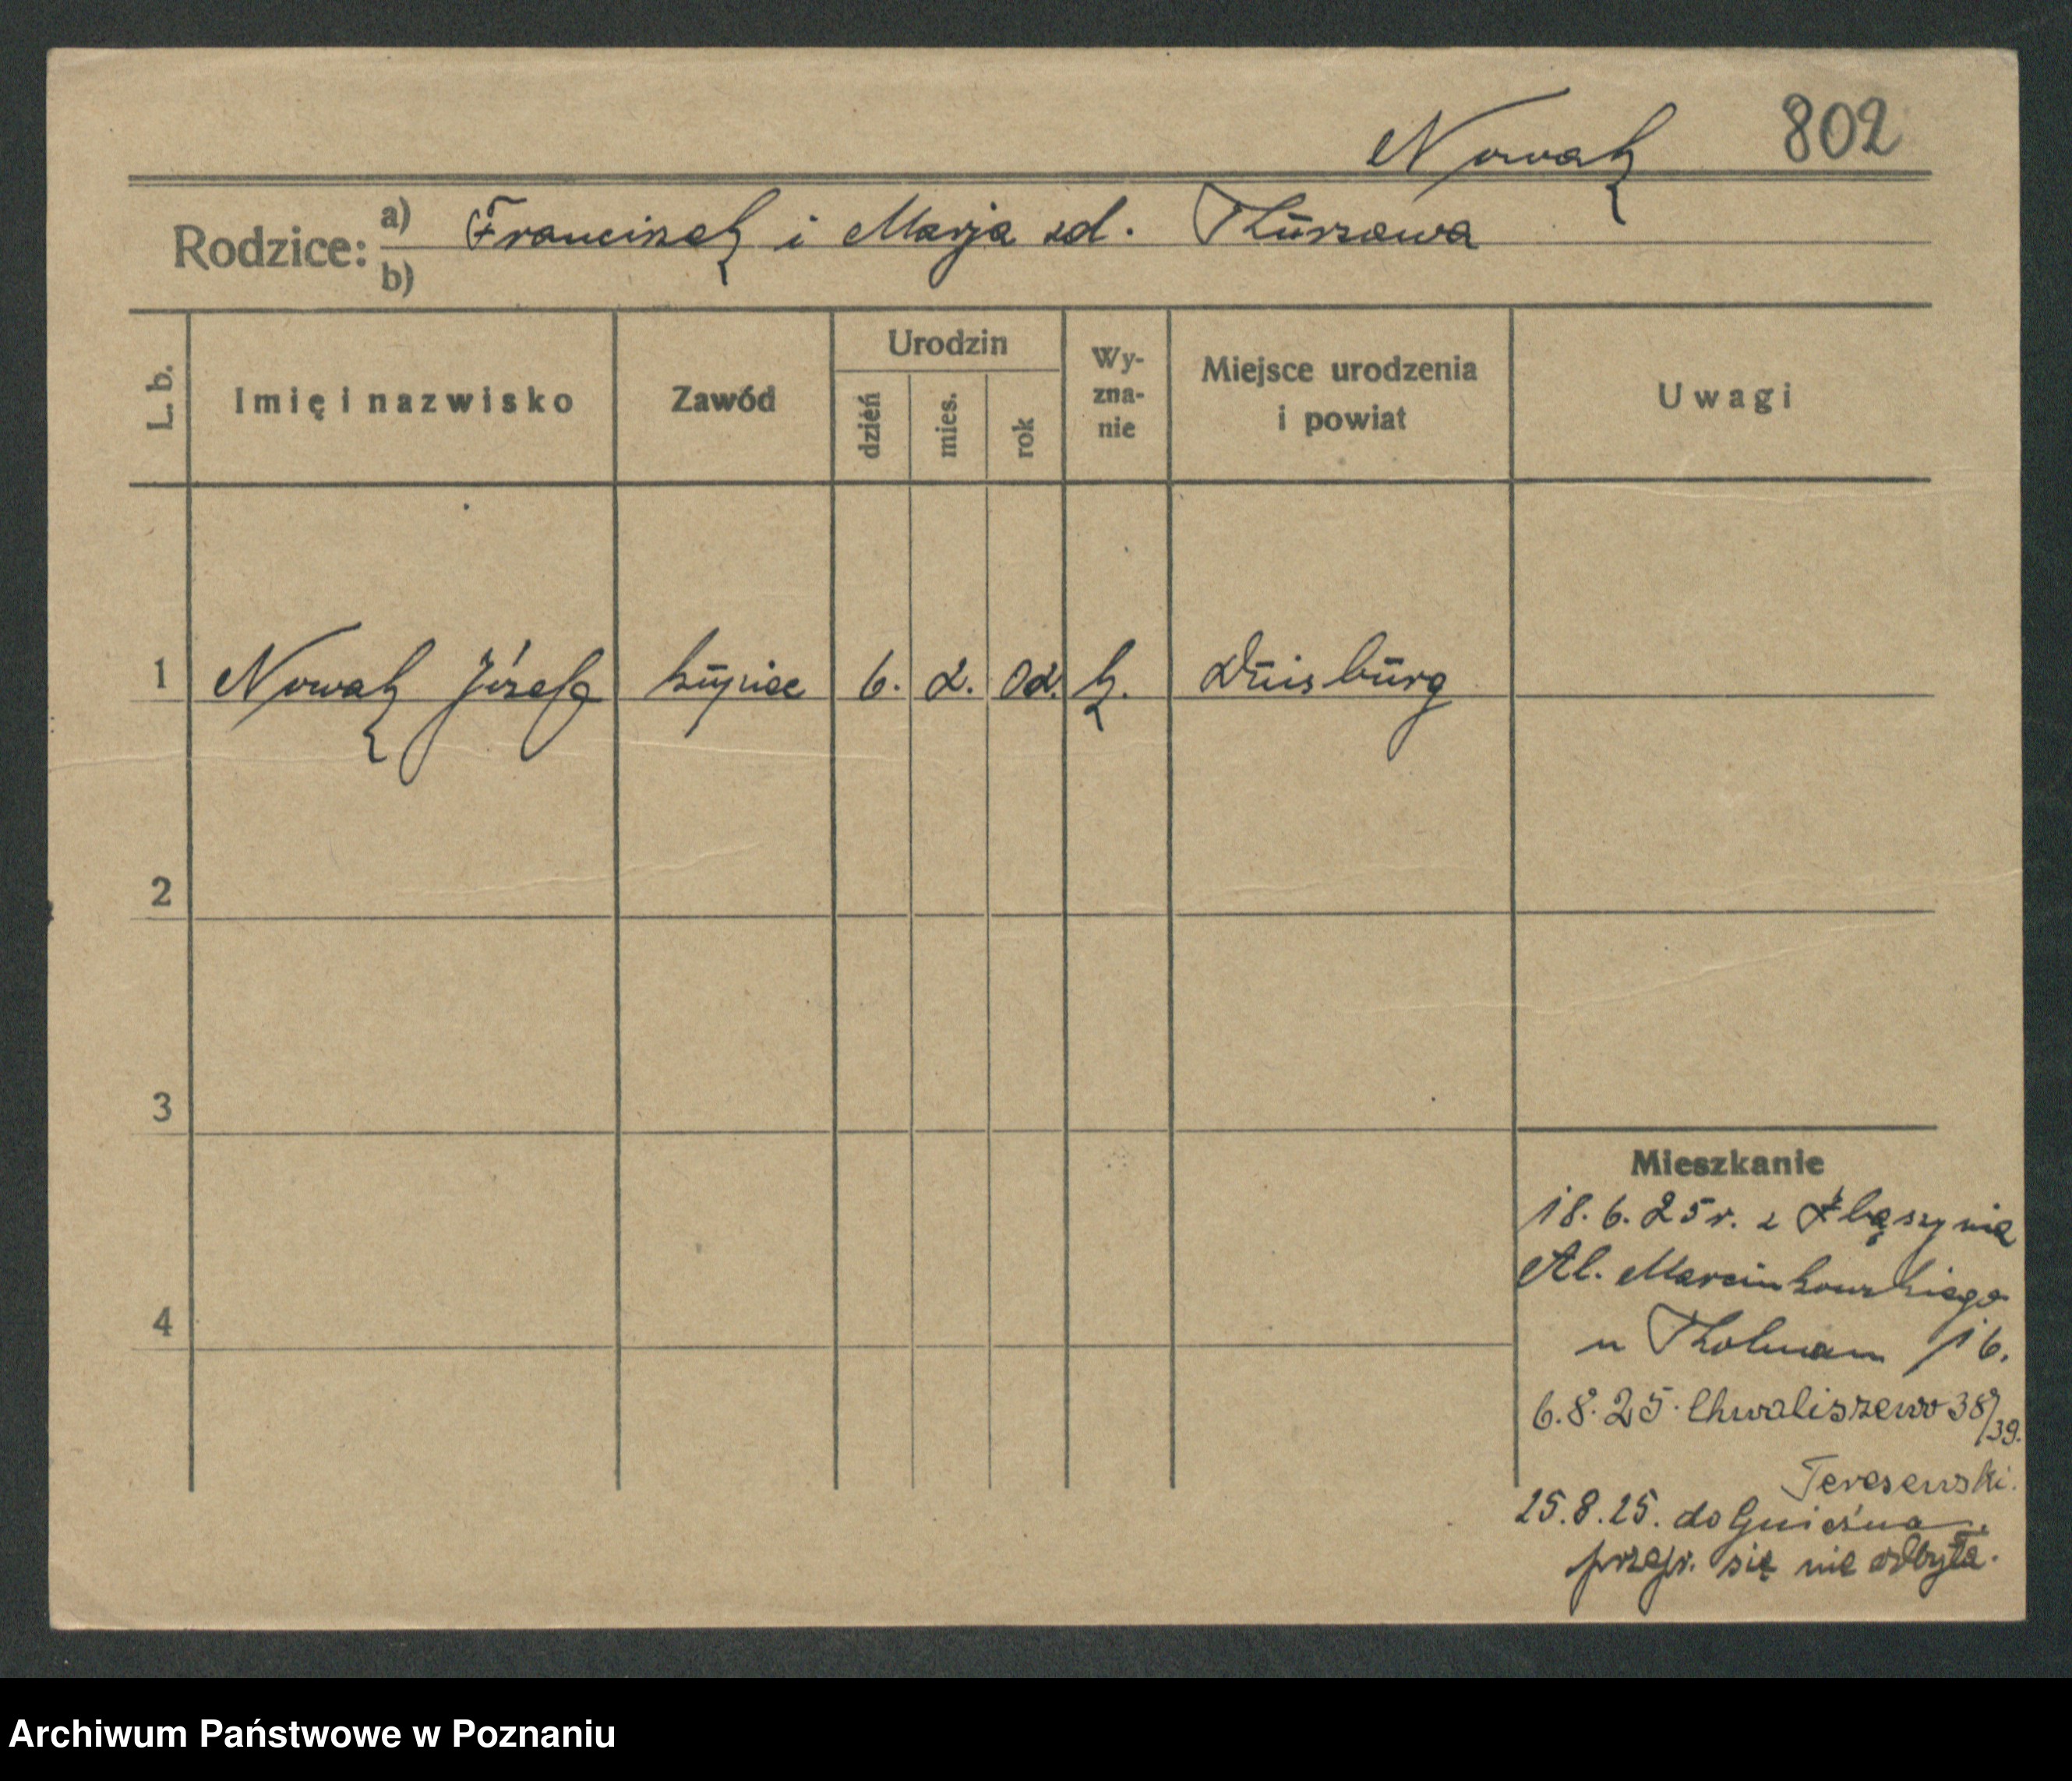 Nowak 802
Rodzice: a) Franciszek i Marja zd.
b)
L. b. Imię i nazwisko Zawód Urodzin dzień mies. rok Wy-zna-nie Miejsce urodzenia i powiat Uwagi
1 Nowak Józef kupiec 6. 2. 02. k. Duisburg
2
3
4
Mieszkanie
18.6.25 r. z Zbąszynia
Al. Marcinkowskiego
u 16.
6.8.25. Chwaliszewo 38/39.
25.8.25. do Gniezna
przepr. się nie odbyła.
Archiwum Państwowe w Poznaniu